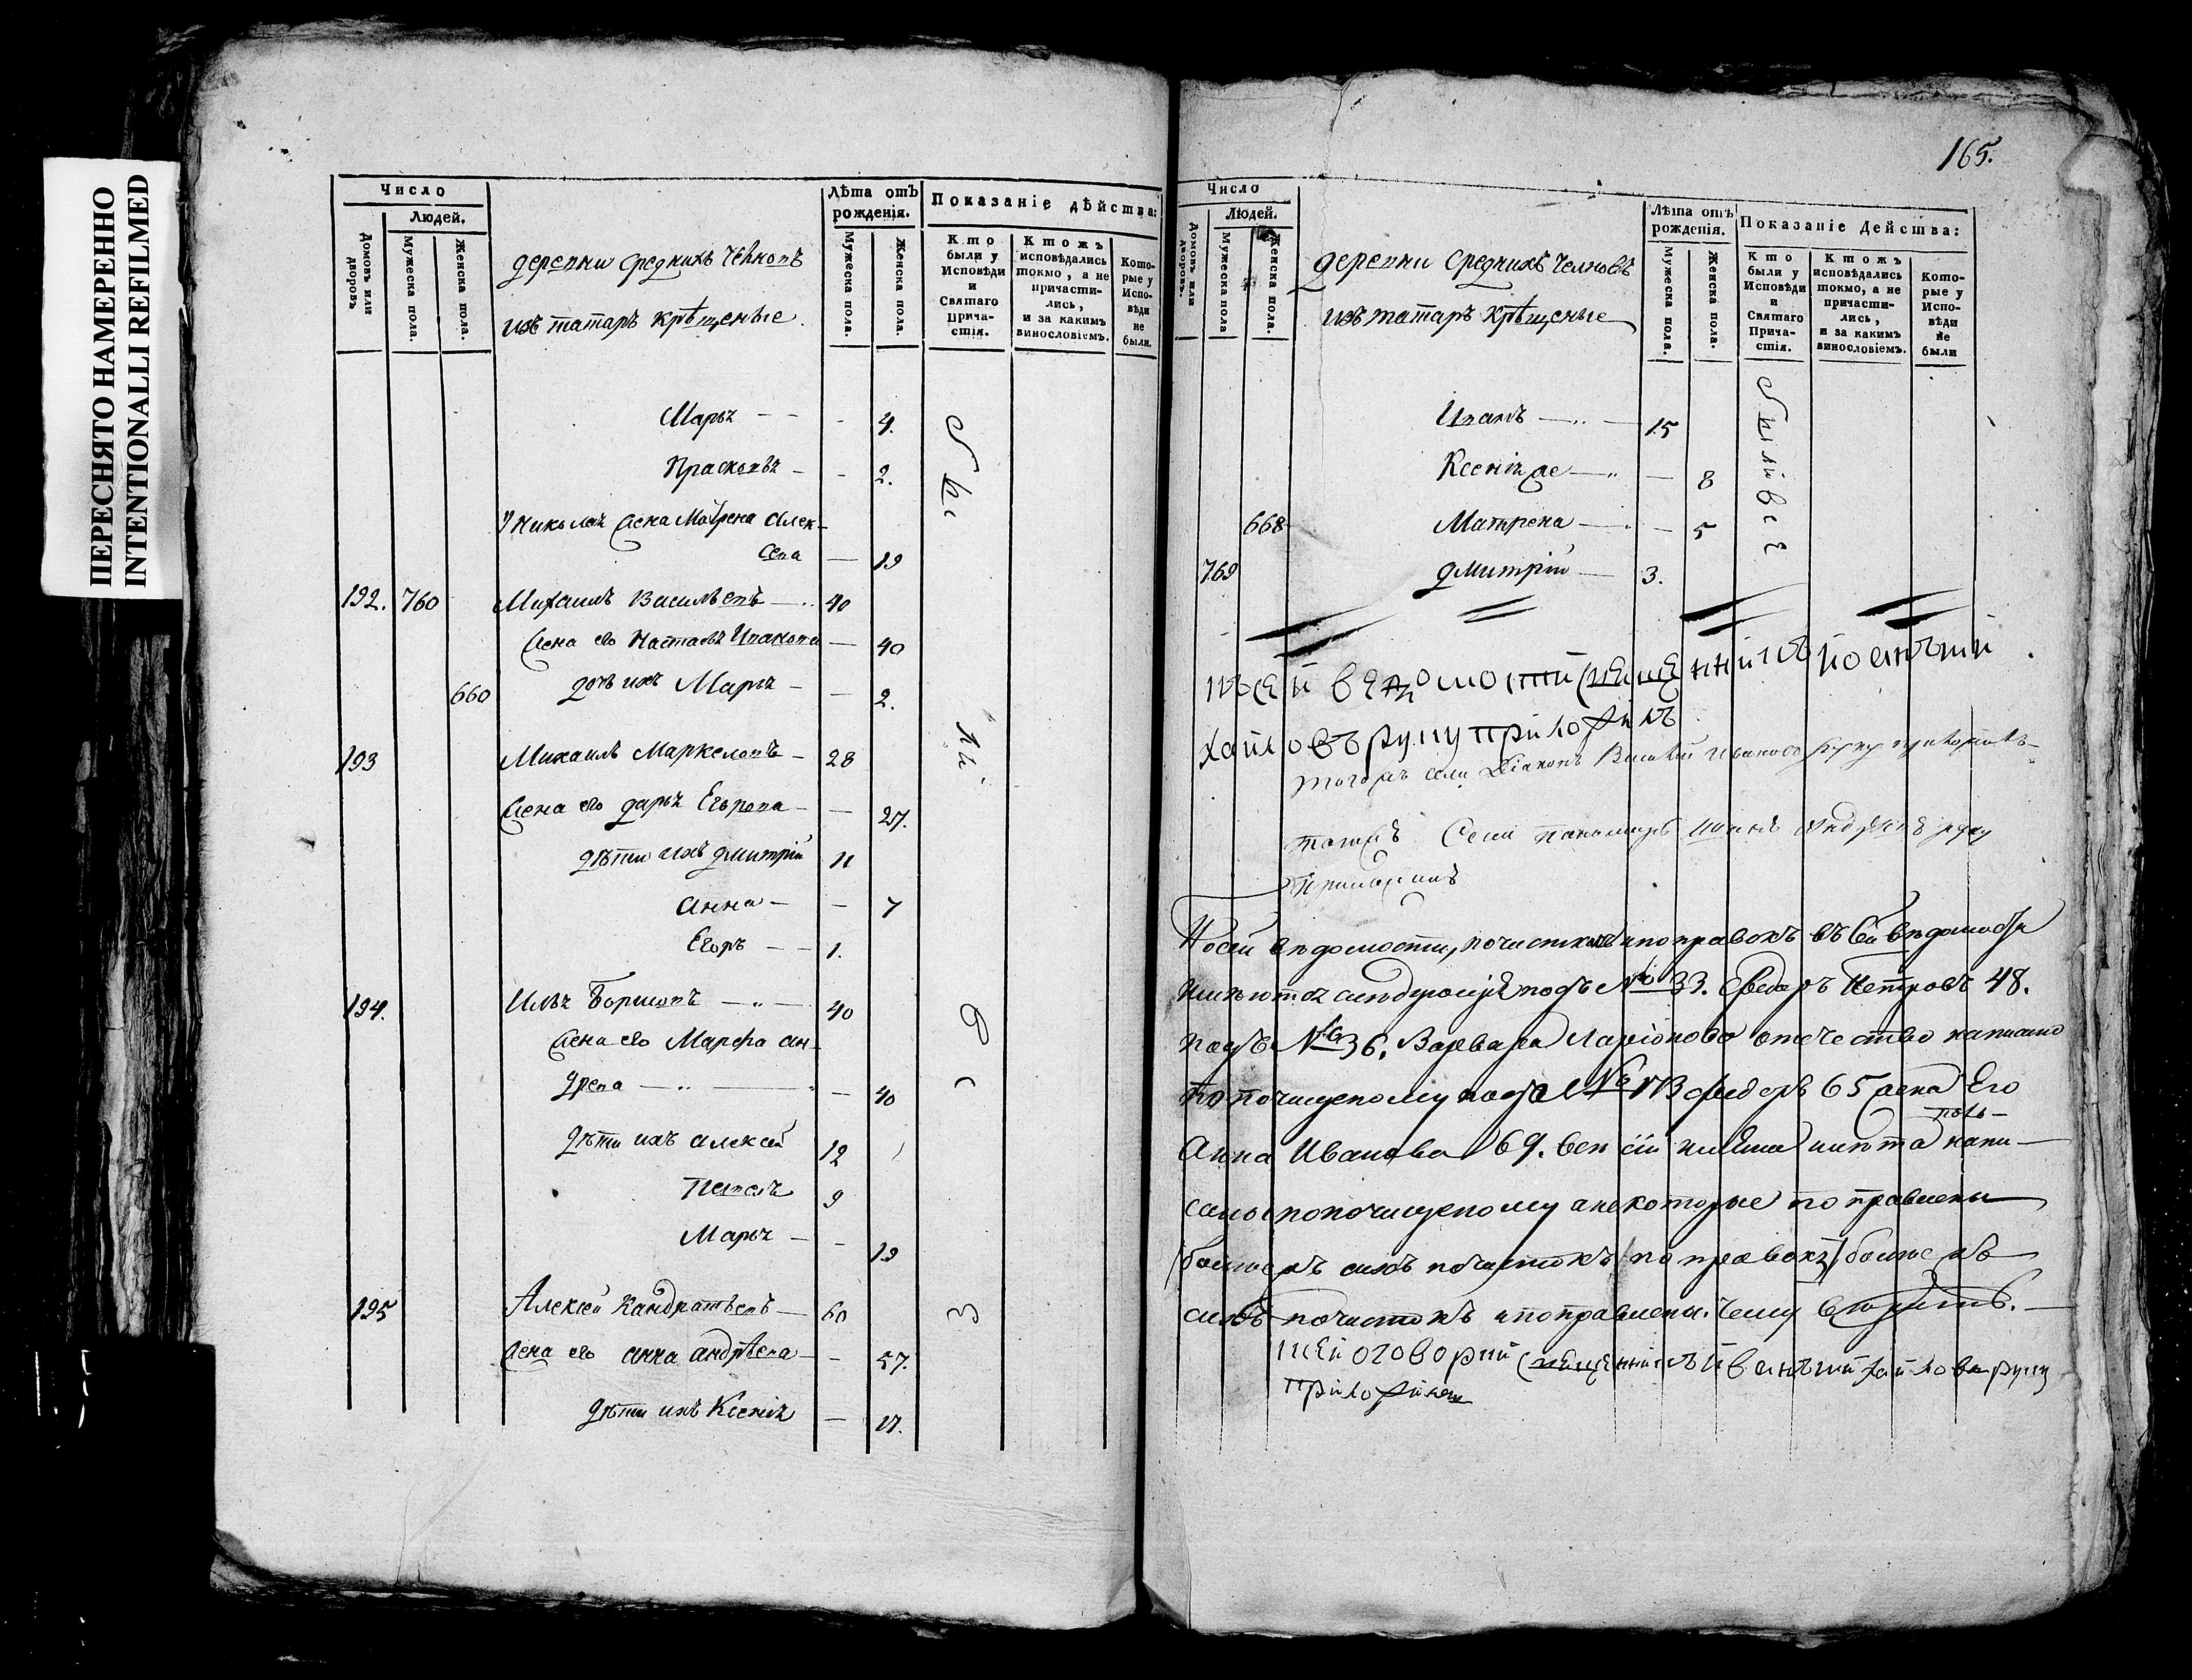 ПЕРЕСНЯТО НАМЕРЕННО
INTENTIONALLI REFILMED
Число
Людей.
Домовъ или дворовъ.
Мужеска пола.
Женска пола.
деревни Среднихъ Челновъ
изъ татаръ крѣщеные
Лѣта отъ рожденія.
Мужеска пола.
Женска пола.
Показаніе дѣйства:
Кто были у Исповѣди и Святаго Прича-стія.
Ктожъ исповѣдались токмо, а не причасти-лись, и за какимъ винословіемъ.
Кото-рые у Испо-вѣди не были.
Марья - - - 4.
Прасковья - - 2.
У Николая жена Матрена Алек-
сѣва — 19
192. 760 Михаилъ Васильевъ — 40
жена его Настасья Иванова — 40
660 дочь ихъ Марья - — 2.
193 Михаилъ Маркеловъ - 28
жена его дарья Егорова - — 27.
дѣти ихъ дмитрій 11
анна - - 7
Егоръ - - 1.
194. Илья Борисовъ — 40
жена его Марфа ан-
древа — 40
дѣти ихъ алексей 12
Павелъ 9
Марья - - 19
195 Алексей Кандратьевъ — 60
жена его анна андрѣева - 57.
дѣти ихъ Ксенія — 17.
Были Всѣ
165.
Число
Людей.
Домовъ или дворовъ.
Мужеска пола
Женска пола.
деревни Среднихъ Челновъ
изъ татаръ крѣщеные
Лѣта отъ рожденія.
Мужеска пола.
Женска пола.
Показаніе Действа:
Кто были у Исповѣди и Святаго Прича-стія.
Ктожъ исповѣдались токмо, а не причасти-лись, и за какимъ винословіемъ.
Кото-рые у Испо-вѣди не были
Иванъ — 15
Ксенія же — — 8
668 Матрена — - 5
769 дмитрій — 3.
Были Всѣ
къ сей ведомости священникъ иоаннъ ми
хайловъ руку приложилъ
тогожъ села Діаконъ Василей Ивановъ руку приложилъ
тогожъ Села пономарь Иванъ Андреевъ руку
приложилъ
Посей ведомости, почистки и поправокъ въ сей ведомости
имеются следующіе подъ № 33. Федоръ Петровъ 48.
подъ № 36. Варвара Ларіонова отечество написано
по почищеному подъ № 173 федоръ 65 жена Его
Анна Иванова 69. все сіи имена и лѣта поль- напи-
саны по почищеному а некоторые поправлены
больше жъ сихъ почистокъ и поправокъ больше жъ
сихъ почистокъ и поправлены. чему верить.
к сей оговорки священникъ иванъ михайловъ руку
приложилъ